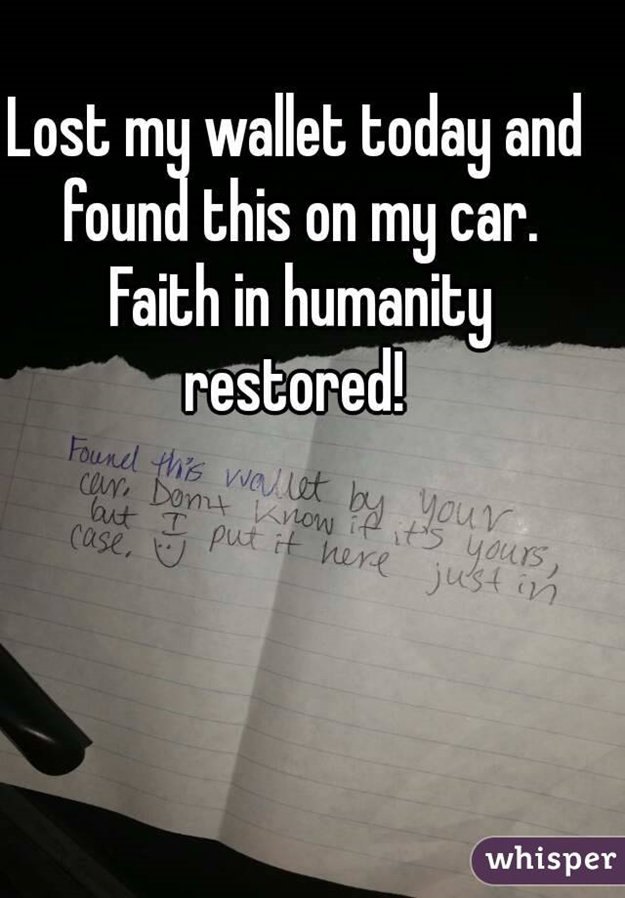 Lost my wallet today and
found this on my car.
Faith in humanity
restored!
Found this wallet by your
car. Don't know if it's yours,
but I put it here just in
case.
whisper